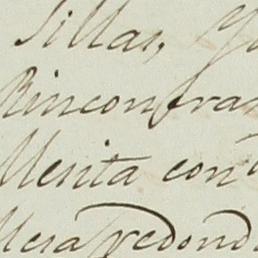 Sillas, 
Rinconera
Mesita con
Mesa redond